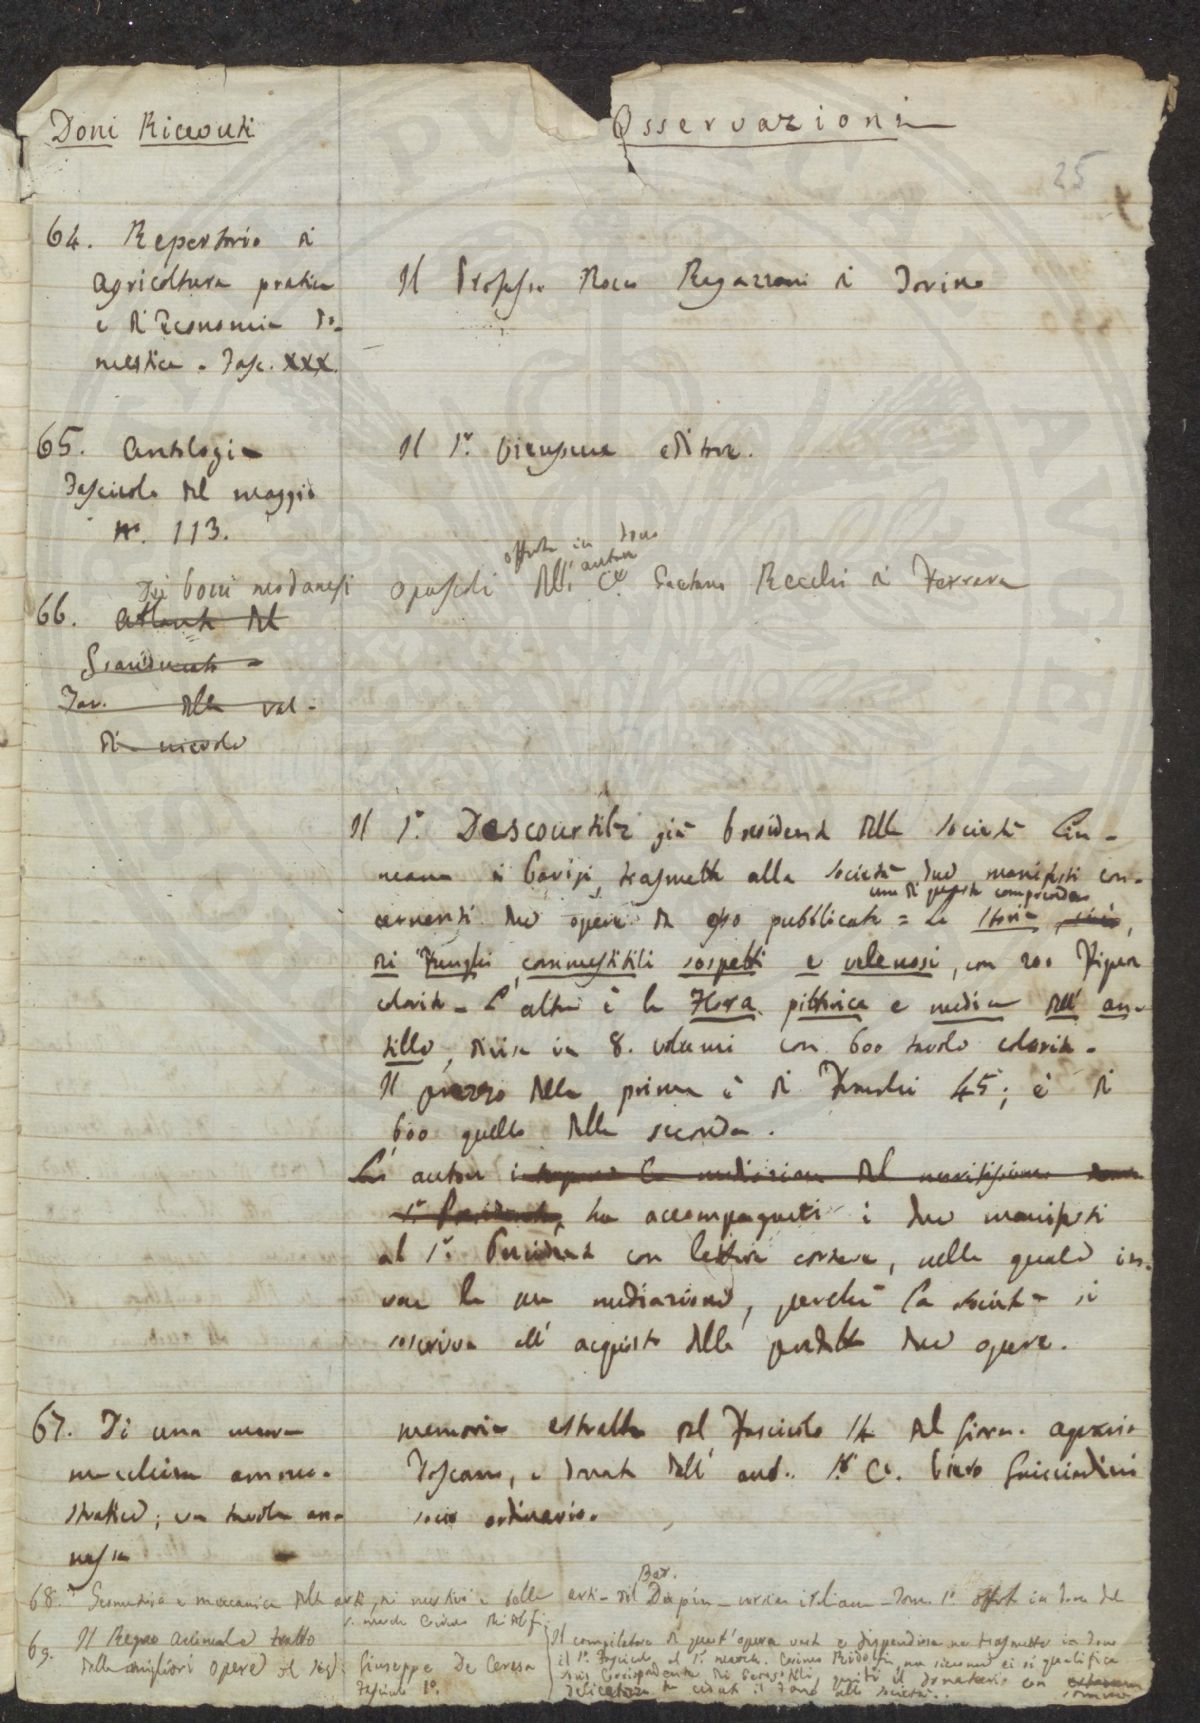 Doni Ricevuti
Osservazioni
25
64. Repertorio di
agricoltura pratica
e di Economia do-
mestica - Fasc. XXX.
Il Professor Rocco Ragazzoni di Torino
65. Antologia
Fascicolo del maggio
N°. 113.
Il Sr. Vieusseux editore.
Dei bovi modanesi
66. Atlante del
Granducato -
Tav. della val-
di nievole
offerto in dono
dall'autore
opuscoli del Ce. Gaetano Recchi di Ferrara
Il Sr. Descourtilz già Presidente della Società Lin-
neana di Parigi, trasmette alla Società due manifesti con-
una di queste comprende
cernenti due opere da esso pubblicate = La Storia
dei Funghi commestibili sospetti e velenosi, con 200 Figure
colorite - L'altra è la Flora pittorica e medica dell' an-
tille, divisa in 8. volumi con 600 tavole colorite.
Il prezzo della prima è di Franchi 45; è di
600 quello della seconda.
L'autore
Sr. Presidente, ha accompagnati i due manifesti
al Sr. Presidente con lettera cortese, nella quale in-
voca la sua mediazione, perchè la Società si
soscriva all' acquisto delle predette due opere.
67. Di una nuova
macchina ammo-
stratrice; con tavola an-
nessa
memoria estratta dal Fascicolo 14 del Giorn. agrario
Toscano, e donata dall' aut. Sr. Ce. Piero Guicciardini
socio ordinario.
68. Geometria e meccanica delle arti, dei mestieri e belle arti - del Bar. Dupin - version italiana - Tomo 1° offerto in dono dal
S. march. Cosimo Ridolfi
69. Il Regno animale tratto
dalle migliori opere del Sig. Giuseppe De Ceresa
Fascicolo 1°.
Il compilatore di quest'opera vasta e dispendiosa ne trasmette in dono
il 1°. Fascicolo al Sr. march. Cosimo Ridolfi,
suo Corrispondente dei Georgofili, quindi il donatario con
delicatezza ha ceduto il dono alla Società.